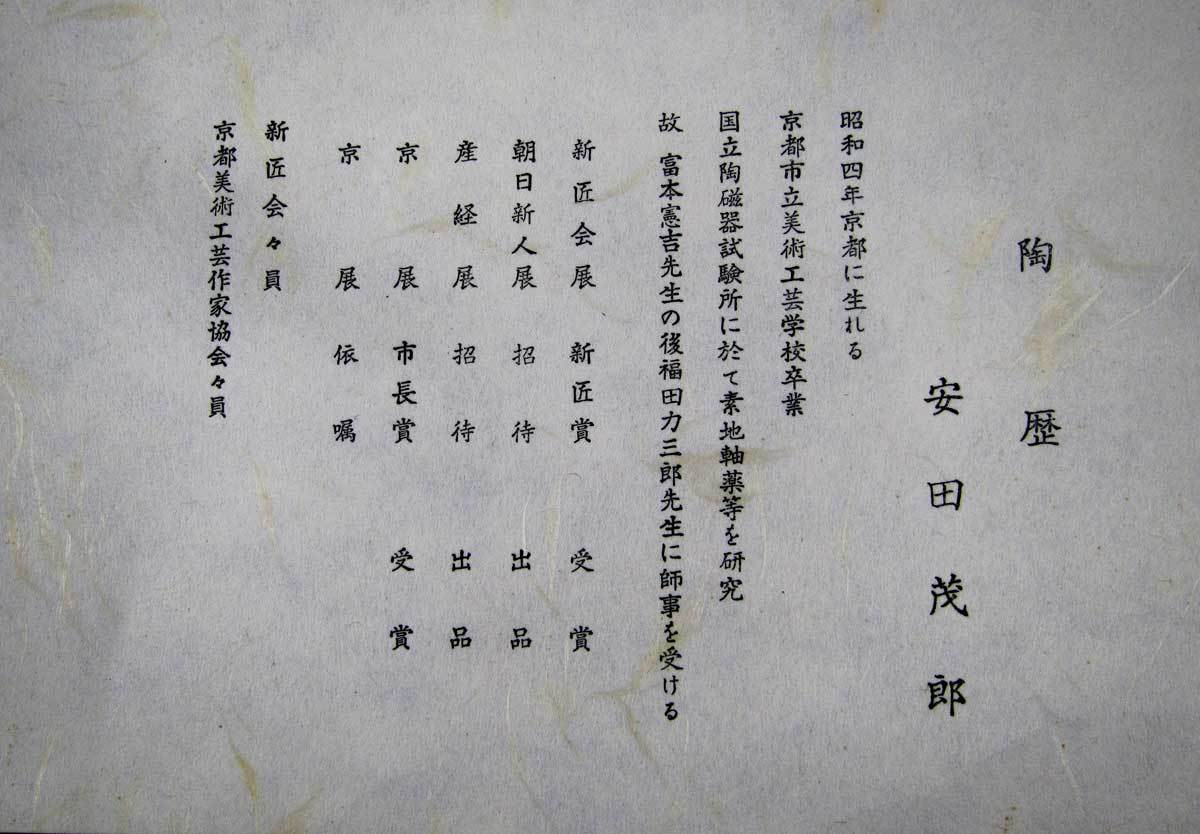 陶歴
安田茂郎
昭和四年京都に生れる
京都市立美術工芸学校卒業
国立陶磁器試験所に於て素地軸薬等を研究
故 富本憲吉先生の後福田力三郎先生に師事を受ける
新匠会展 新匠賞 受賞
朝日新人展 招待 出品
産経展 招待 出品
京展 市長賞 受賞
京展 依嘱
新匠会々員
京都美術工芸作家協会々員